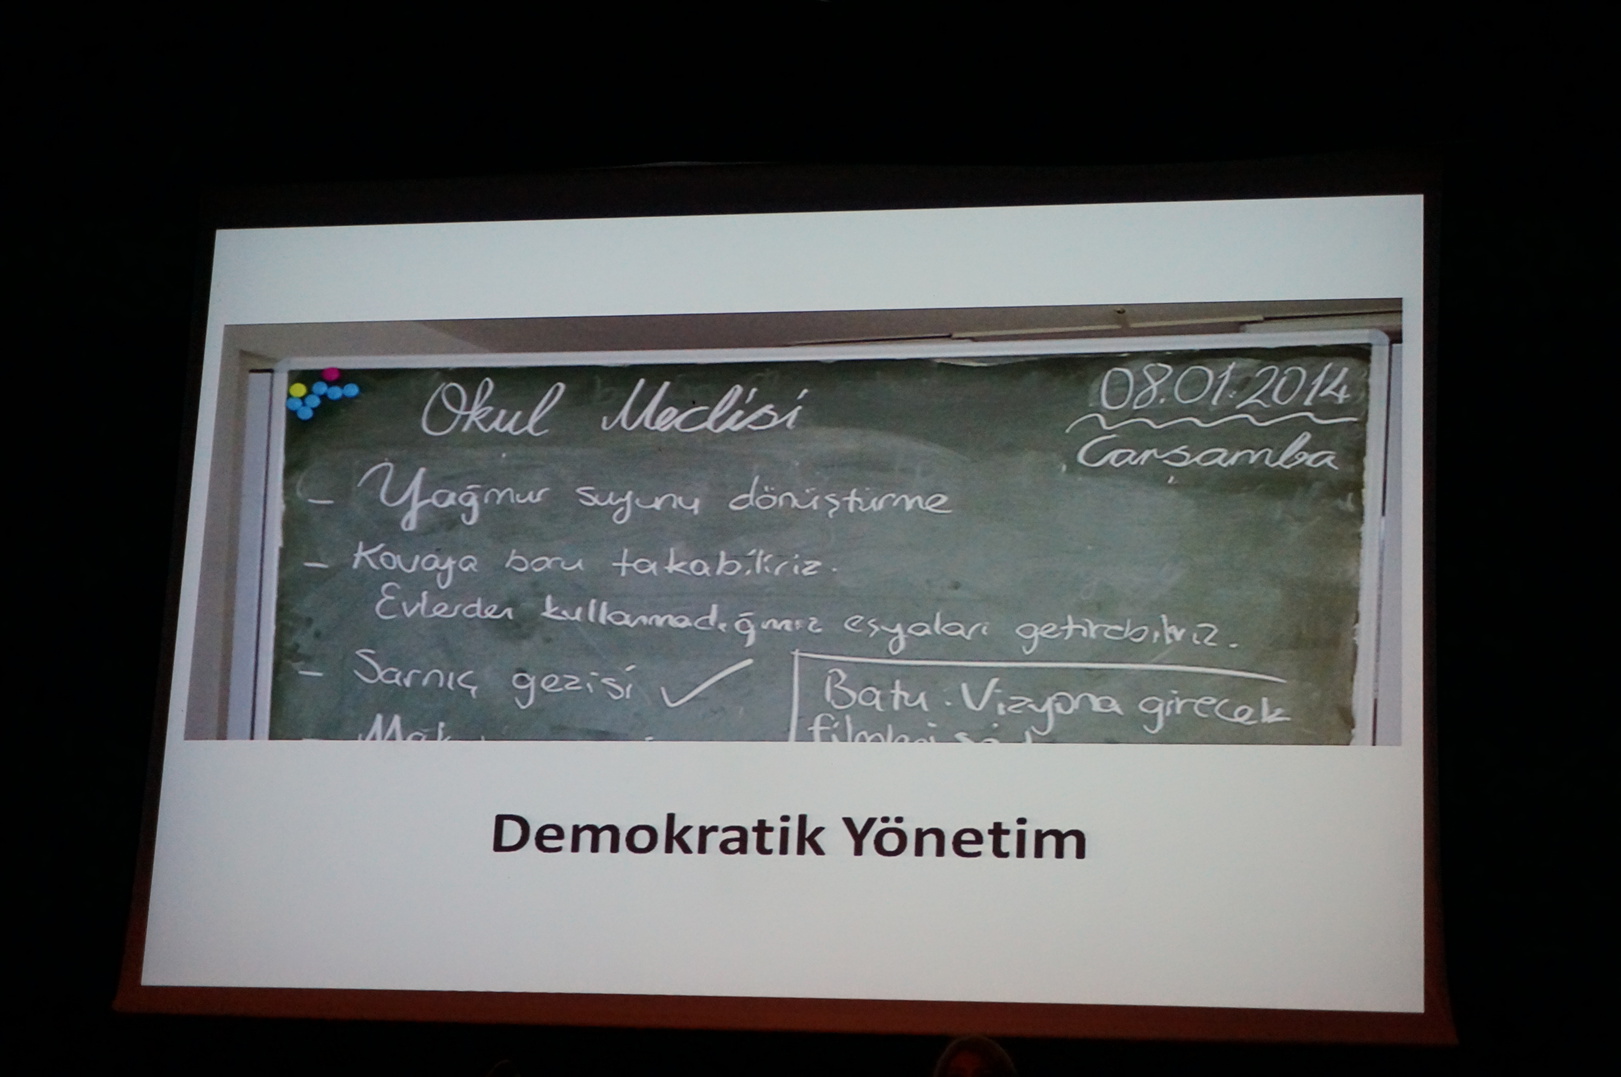 Okul Meclisi
08.01.2014
Çarşamba
- Yağmur suyunu dönüştürme
- Kovaya boru takabiliriz.
Evlerden kullanmadığımız eşyaları getirebiliriz.
- Sarnıç gezisi ✓
Batu: Vizyona girecek
filmleri
Demokratik Yönetim